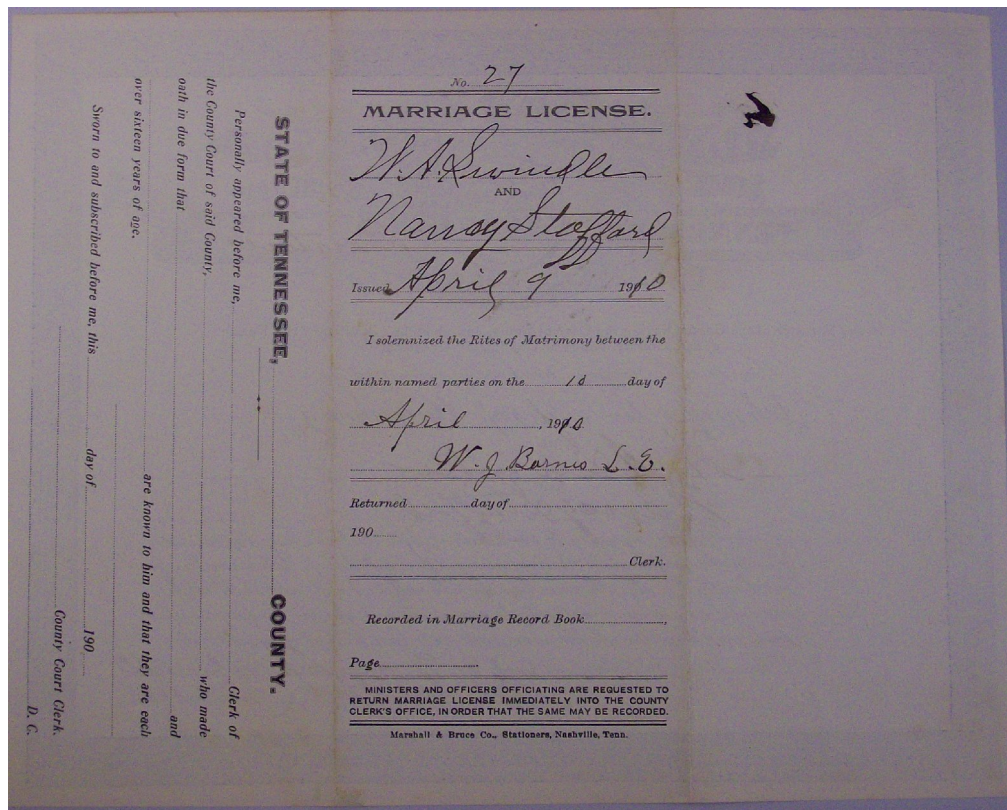 No. 27
MARRIAGE LICENSE.
W. A. Swindle
AND
Nancy Stafford
Issued April 9 1910
I solemnized the Rites of Matrimony between the
within named parties on the 10 day of
April, 1910
W. J. Barnes L. E.
Returned day of
190
Clerk.
Recorded in Marriage Record Book,
Page.
MINISTERS AND OFFICERS OFFICIATING ARE REQUESTED TO
RETURN MARRIAGE LICENSE IMMEDIATELY INTO THE COUNTY
CLERK'S OFFICE, IN ORDER THAT THE SAME MAY BE RECORDED.
Marshall & Bruce Co., Stationers, Nashville, Tenn.
STATE OF TENNESSEE, COUNTY.
Personally appeared before me, Clerk of
the County Court of said County, who made
oath in due form that and
are known to him and that they are each
over sixteen years of age.
Sworn to and subscribed before me, this day of 190
County Court Clerk.
D. C.